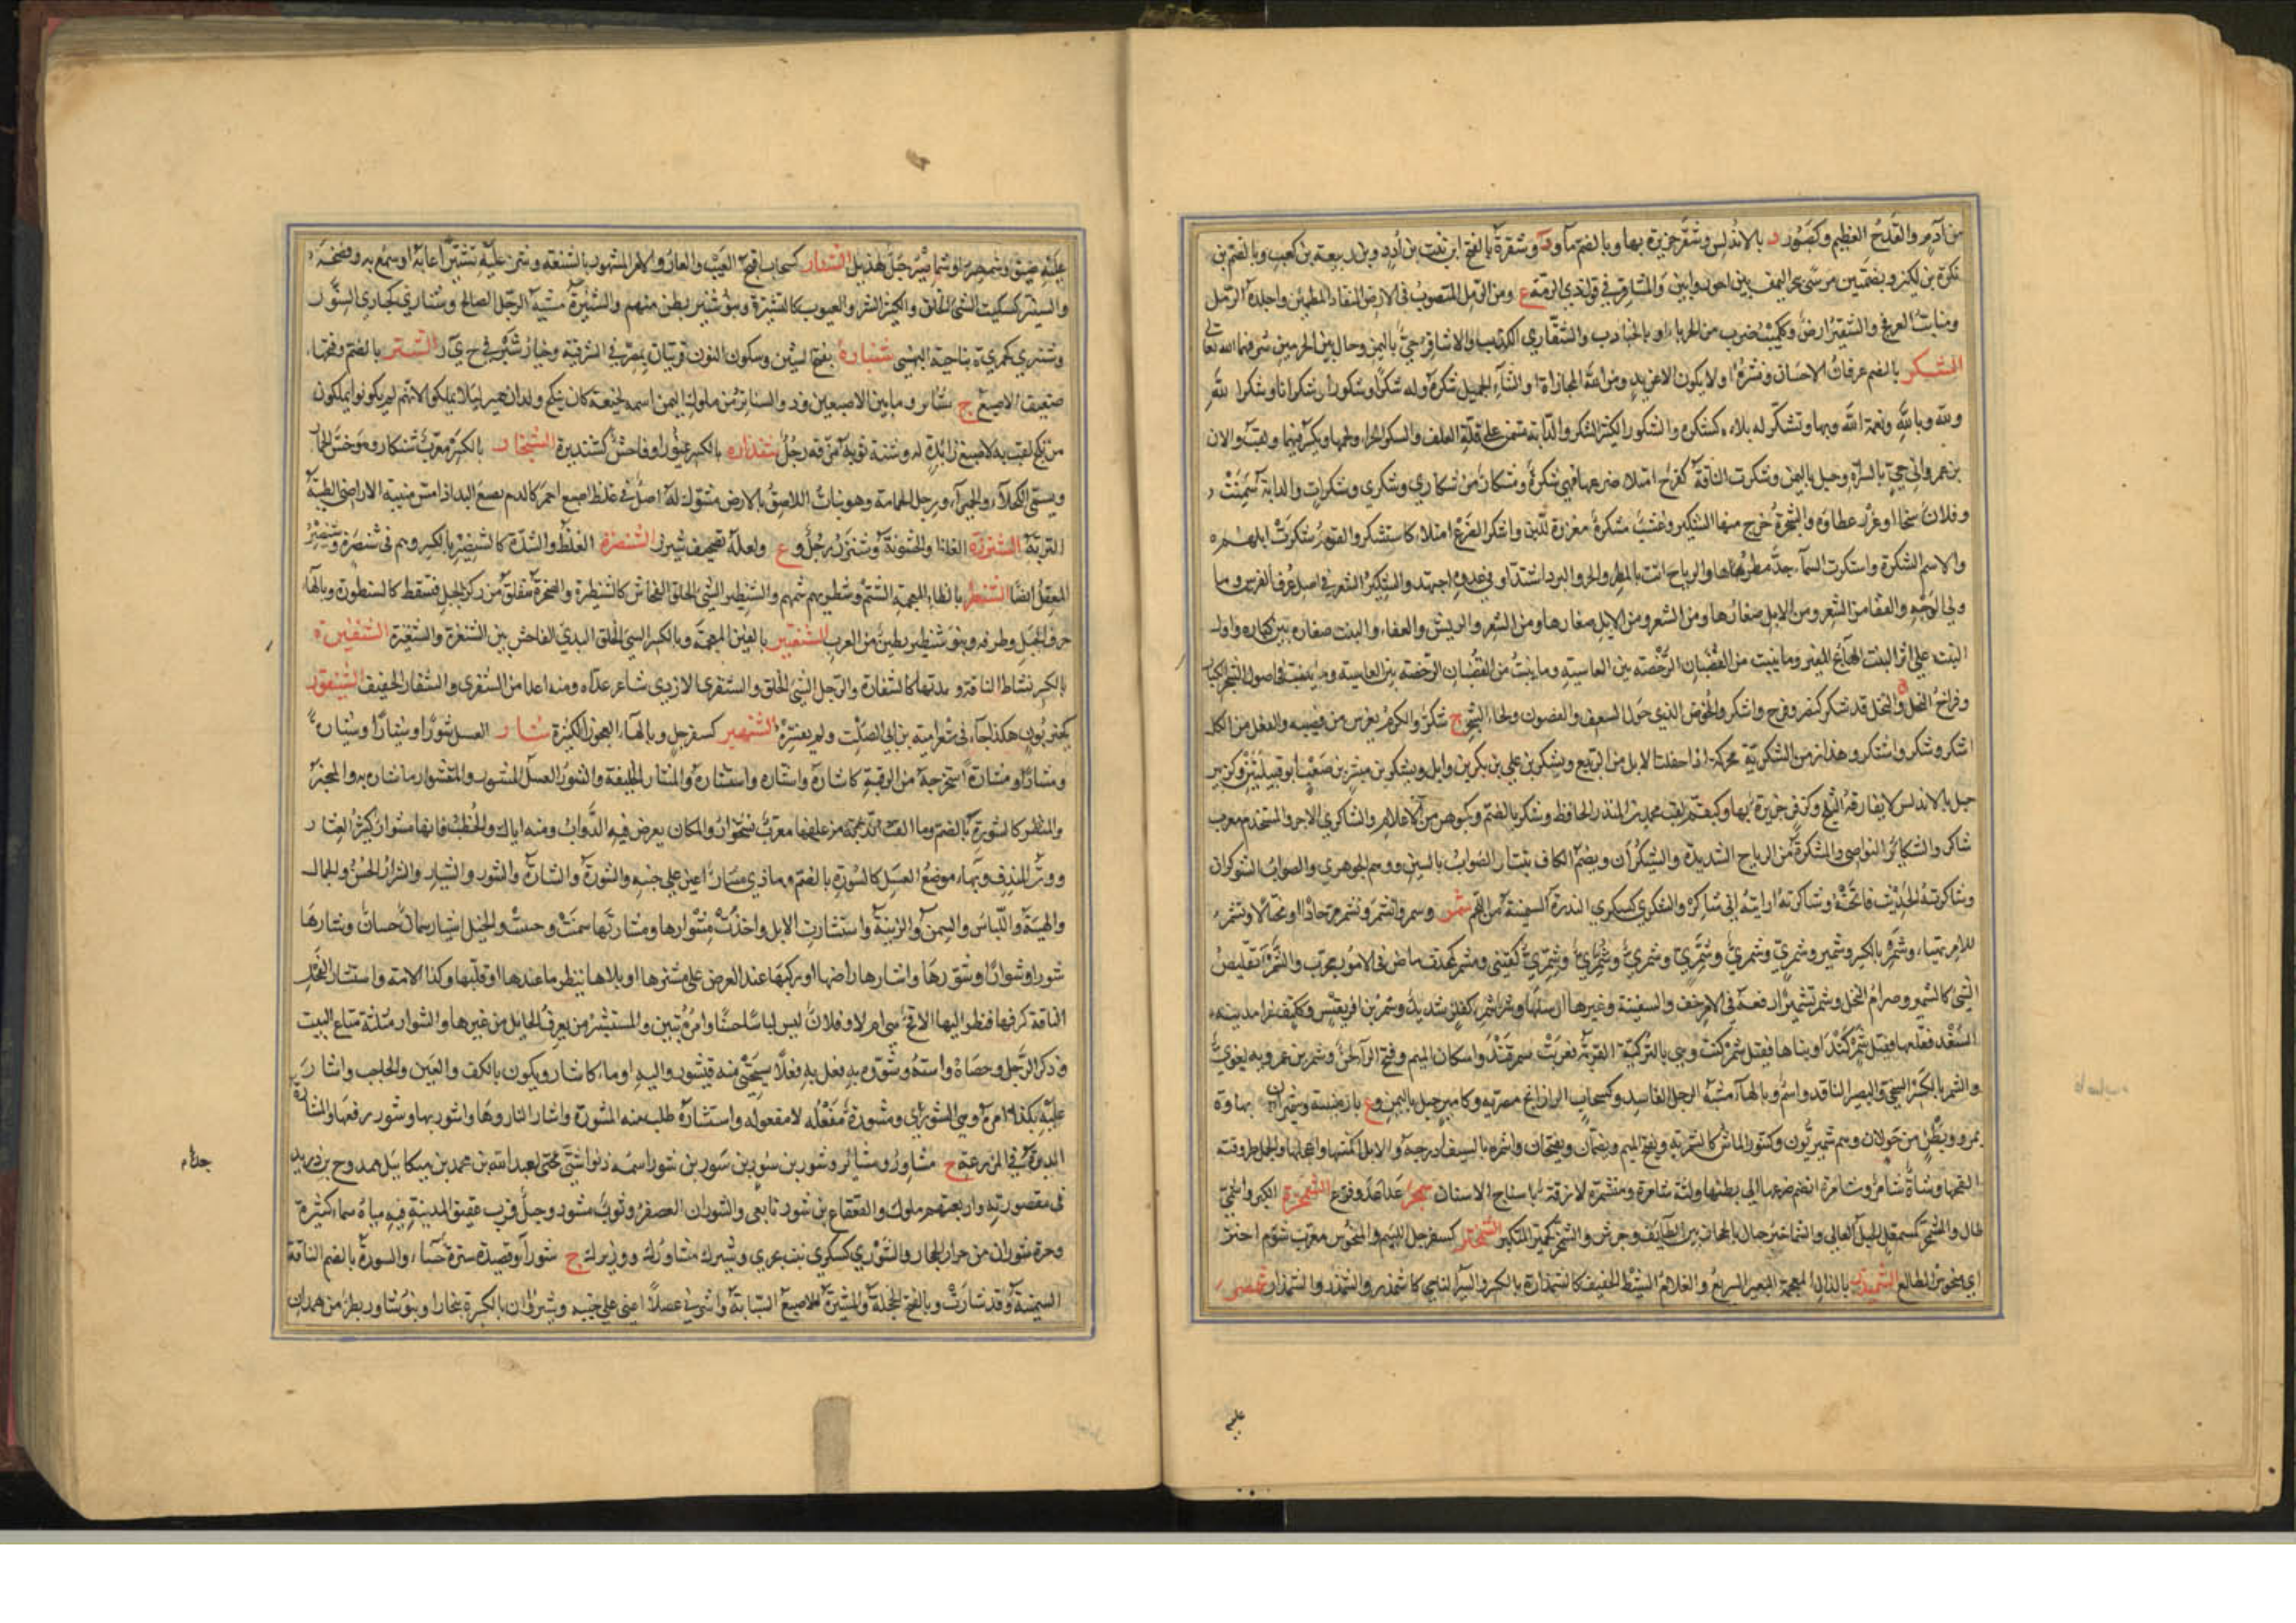 من آدم والقدح العظيم وكصبور د بالاندلس وشقر جزيرة بها وبالضم ماء ود وشقرة بالفتح ابن نبت بن أدد وبن ربيعة بن كعب وبالضم بن
نكرة بن لكيز وبضمتين مرسى ببحر اليمن بين احور وابين والمشاقر في قول ذي الرمة ع ومن الرمل المتصوب في الارض المنقاد المطمئن واجلدة الرمل
ومنابت العرفج والشقير ارض وكميت ضرب من الحرباء او بالجنادب والشقاري الكذب والاشاقر حي باليمن وجبال بين الحرمين شرفهما الله تعالى
الشكر بالضم عرفان الاحسان ونشره او لا يكون الا عن يد ومن الله المجازاة والثناء الجميل شكره وله شكرا وشكورا وشكرانا وشكر الله
ولله وبالله ونعمة الله وبها وتشكر له بلاءه كشكره والشكور الكثير الشكر والدابة تسمن على قلة العلف والشكر الحر ولحمها ويكسر فيهما وهبت والان
بن عمرو ابي حي بالسراة وجبل باليمن وشكرت الناقة كفرح امتلاء ضرعها فهي شكرة ومشكار من شكارى وشكرى وشكرات والدابة سمنت
وفلان سخا او غزر عطاؤه والشجرة خرج منها الشكير وعشب مشكرة مغزرة للبن واشكر الضرع امتلاء كاستشكر والقوم شكرت ابلهم
والاسم الشكرة واشتكرت السماء جد مطرها والرياح اتت بالمطر والحر والبرد اشتدا وفي عدوه اجتهد والشكير الشعر في اصل عرف الفرس وما
ولي الوجه والقفا من الشعر ومن الابل صغارها ومن الشعر والريش والعفاء والنبت صغاره بين كباره واول
النبت على اثر النبت الهائج المغبر وما ينبت من القضبان الرخصة بين العاسية وما ينبت في اصول الشجر الكبار
وفراخ النخل والنخل قد شكر كنصر وفرح واشكر والخوص الذي حول السعف والغصون ولحاء الشجر ج شكر والكرم يغرس من قضيبه والفعل من الكل
اشكر وشكر واشتكر وهذا زمن الشكرية محركة اذا حفلت الابل من الربيع ويشكر بن علي بن بكر بن وايل ويشكر بن مبشر بن صعب ابو قبيلتين وكزبير
جبل بالاندلس لا يفارقه الثلج وكزفر جزيرة بها وكبقم لقب محمد بن المنذر الحافظ وشكر بالضم وكجوهر من الاعلام والشاكري الاجير والمستخدم معرب
شاكر والشكائر النواصي والمشتكرة من الرياح الشديدة والشيكران وبضم الكاف نبتار الصواب بالسين ووهم الجوهري والصواب الشوكران
وشاكرته الحديث فاتحته وشاكرته اريته اني شاكر والشكرى كسكرى الفدرة السمينة من اللحم شمر وشمر وانشمر وتشمر مر جادا او مختالا وتشمر
للامر تهيأ وشمر بالكسر وشمير وشمري وشمري وشمري وشمري وشمري كقنبي ومشمر كمحدث ماض في الامور مجرب والشمر تقليص
الشيء كالتشمير وصرام النخل وشمر تشميرا رفعه وفي الامر خف والسفينة وغيرها ارسلها وشر شمر كفلز شديد وشمر بن افريقيس وككتف غزا مدينة
السغد فقلعها فقيل شمر كند او بناها فقيل شمر كنت وهي بالتركية القرية فعربت سمرقند واسكان الميم وفتح الراء لحن وشمر بن عمرو به لغوي
والشمر بالكسر السخي والبصير الناقد واسم وبالهاء مشية الرجل الفاسد وكسحاب الرازيانج مصرية وكامير جبل باليمن وع بارمينية وشميران د بها وة
بمرو وبطن من خولان وهم شميريون وكتنور الماش
القمها وشاة شامر وشامرة انضم ضرعها الى بطنها ولثة شامرة ومتشمرة لازقة باسناخ الاسنان شمجر عدا عدو فزع الشمخرة الكبر والمختي
طال والمشمخر كمسمعل الجبل العالي والشماخير جبال بالحجاز بين الطائف وجرش والشمخر كميت المتكبر الشمختر كسفرجل اللئيم والمنحوس معرب شوم اختر
اي منحوس الطالع الشميذر بالذال المعجمة البعير السريع والغلام النشيط الخفيف كالشمذارة بالكسر والسير الناجي كالشمذر والشمذر والشمذار شمصر
عليه
عليه ضيق وشمصير او شماصير جبل لهذيل الشنار كسحاب اقبح العيب والعار والامر المشهور بالشنعة وشنر عليه تشنيرا عابه او سمع به وفضحه
والشنير كسكيت السيئ الخلق والكثير الشر والعيوب كالشنيرة وبنو شنير بطن منهم والشنرة مشية الرجل الصالح وشنارى كحبارى السنور
وشنرى كمرى ة بناحية البهنسى شنبارة بفتح الشين وسكون النون قريتان بمصر في الشرقية وخيار شنبر في خ ي ر الشنتر بالضم وفتحها
ضيق الاصبع ج شناتر وما بين الاصبعين وذو الشناتر من ملوك اليمن اسمه لخنيعة كان ينكح ولدان حمير لئلا يملكوا لانهم لم يكونوا يملكون
من نكح لقب به لاصبع زائدة له وشنتر ثوبه مزقه رجل شنذاره بالكسر غيور او فاحش كشنذيرة الشنجار بالكسر معرب شنكار وهو خس الحمار
ويسمى الكحلاء والحميراء ورجل الحمامة وهو نبات اللاصق بالارض مشوك له اصل في غلظ اصبع احمر كالدم يصبغ اليد اذا مس منبته الاراضي الطيبة
التربة الشنزرة الغلظ والخشونة وشنزر رجل وع ولعله تصحيف شيزر الشنصرة الغلظ والشدة كالشنصير بالكسر وهم في شنصرة وشنصير
المعقل ايضا الشنظر بالظاء المعجمة الشتم وشنظر بهم شتمهم والشنظير السيئ الخلق الفحاش كالشنظيرة والصخرة تنفلق من ركن الجبل فتسقط كالشنظورة وبالهاء
حرف الجبل وطرفه وبنو شنظير بطين من العرب الشنغير بالغين المعجمة وبالكسر السيئ الخلق البذي الفاحش بين الشنغرة والشنغيرة الشنفيرة
بالكسر نشاط الناقة وحدتها كالشنفارة والرجل السيئ الخلق والشنفرى الازدي شاعر عداء ومنه اعدا من الشنفرى والشنفار الخفيف الشنقور
كجنبور هكذا جاء في شعر امية بن ابي الصلت ولم يفسره الشنهبر كسفرجل وبالهاء العجوز الكبيرة شار العسل شورا وشيارا وشيارة
ومشارا ومشارة استخرجه من الوقبة كاشاره واشتاره واستشاره والمشار الخلية والشور العسل المشور والمشوار ما شاره به والمخبر
والمنظر كالشورة بالضم وما ابقت الدابة من علفها معرب نشخوار والمكان يعرض فيه الدواب ومنه اياك والخطب فانها مشوار كثير العثار
ووتر المندف وبهاء موضع العسل كالشورة بالضم وماذي مشار اعين على جنيه والشورة والشارة والشور والشيار والشوار الحسن والجمال
والهيئة واللباس والسمن والزينة واستشارت الابل واخذت مشوارها ومشارتها سمنت وحسنت والخيل شيار سمان حسان وشارها
شورا وشوارا وشورها واشارها راضها او ركبها عند العرض على مشتريها او بلاها ينظر ما عندها او قلبها وكذا الامة واستشار الفحل
الناقة كرفها فنظر اليها الاقح هي ام لا وفلان لبس لباسا حسنا وامره تبين والمستشير من يعرف الحايل من غيرها والشوار مثلثة متاع البيت
وذكر الرجل وخصياه واسته وشور به فعل به فعلا يستحيى منه فتشور واليه اوماء كاشار ويكون بالكف والعين والحاجب واشار
عليه بكذا امره وهي الشورى ومشورة مفعلة لا مفعولة واستشاره طلب منه المشورة واشار النار وبها واشور بها وشور رفعها والمشارة
الدبرة في المزرعة ج مشاور ومشائر وشور بن شور بن شور بن شور اسمه ديواشتي محتي لعبد الله بن محمد بن ميكائيل ممدوح بن دريد
في مقصورته واربعتهم ملوك والقعقاع بن شور تابعي والشوران العصفر وثوب مشور وجبل قرب عقيق المدينة فيه مياه سماء كثيرة
وحرة شوران من حرار الحجاز والشورى كسكرى نبت بحري وشيرك مشاورك ووزيرك ج شوراء وقصيدة شيرة حسناء والشورة بالضم الناقة
السمينة وقد شارت وبالفتح الخجلة والمشيرة الاصبع السبابة واشرني عسلا اعني على جنيه وشيروان بالكسر ة ببخارا وبنو شاور بطن من همدان